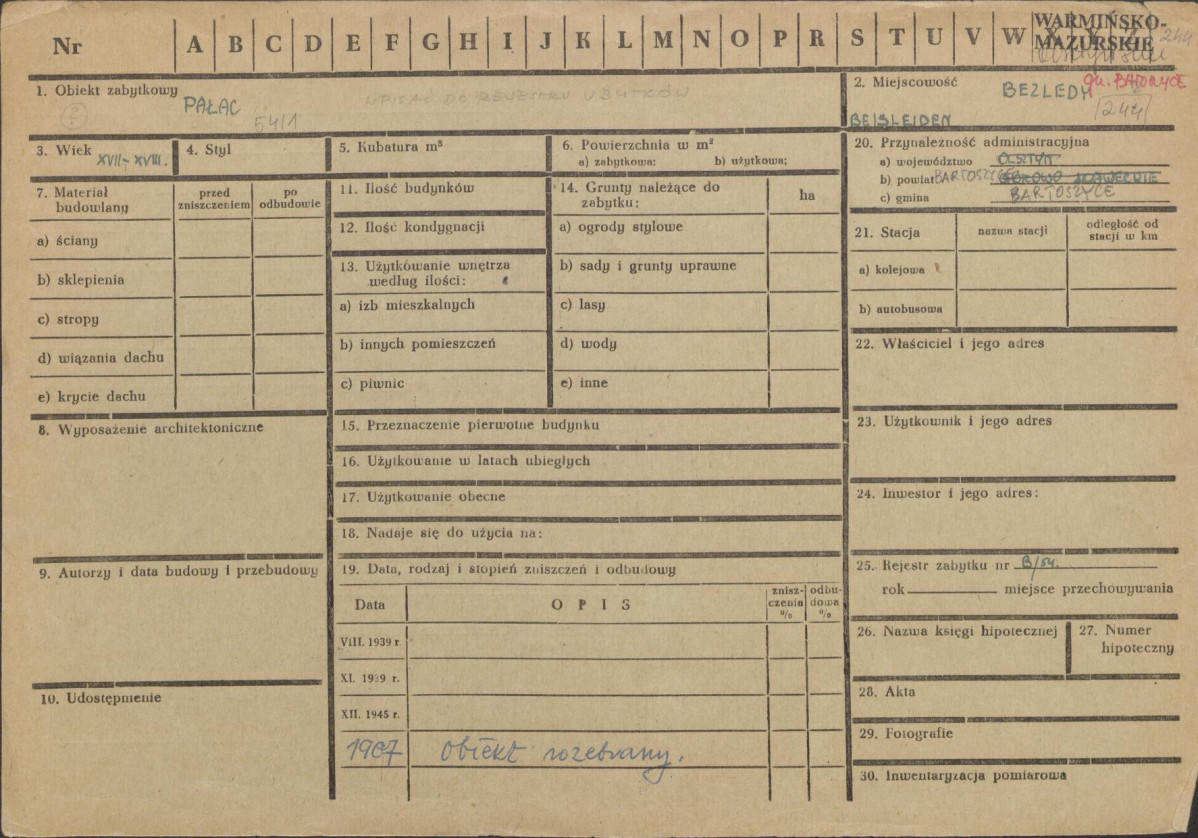 Nr A B C D E F G H I J K L M N O P R S T U V W X Y Z
WARMIŃSKO-
MAZURSKIE
244
1. Obiekt zabytkowy
PAŁAC
5411
WPISAĆ DO REJESTRU UBYTKÓW
2. Miejscowość
BEZLEDY
gm. BARTOSZYCE
244
BEISLEIDEN
3. Wiek XVII-XVIII.
4. Styl
5. Kubatura m³
6. Powierzchnia w m²
a) zabytkowa: b) użytkowa;
20. Przynależność administracyjna
a) województwo OLSZTYN
b) powiat BARTOSZYCE GÓROWO IŁAWECKIE
c) gmina BARTOSZYCE
7. Materiał budowlany
przed zniszczeniem
po odbudowie
a) ściany
b) sklepienia
c) stropy
d) wiązania dachu
e) krycie dachu
11. Ilość budynków
12. Ilość kondygnacji
13. Użytkowanie wnętrza
według ilości:
a) izb mieszkalnych
b) innych pomieszczeń
c) piwnic
14. Grunty należące do
zabytku:
ha
a) ogrody stylowe
b) sady i grunty uprawne
c) lasy
d) wody
e) inne
21. Stacja
nazwa stacji
odległość od
stacji w km
a) kolejowa
b) autobusowa
22. Właściciel i jego adres
8. Wyposażenie architektoniczne
15. Przeznaczenie pierwotne budynku
16. Użytkowanie w latach ubiegłych
17. Użytkowanie obecne
18. Nadaje się do użycia na:
23. Użytkownik i jego adres
24. Inwestor i jego adres:
9. Autorzy i data budowy i przebudowy
19. Data, rodzaj i stopień zniszczeń i odbudowy
Data
OPIS
znisz-
czenia
%
odbu-
dowa
%
VIII. 1939 r.
XI. 1939 r.
XII. 1945 r.
1967 Obiekt rozebrany.
10. Udostępnienie
25. Rejestr zabytku nr B/54.
rok miejsce przechowywania
26. Nazwa księgi hipotecznej
27. Numer
hipoteczny
28. Akta
29. Fotografie
30. Inwentaryzacja pomiarowa